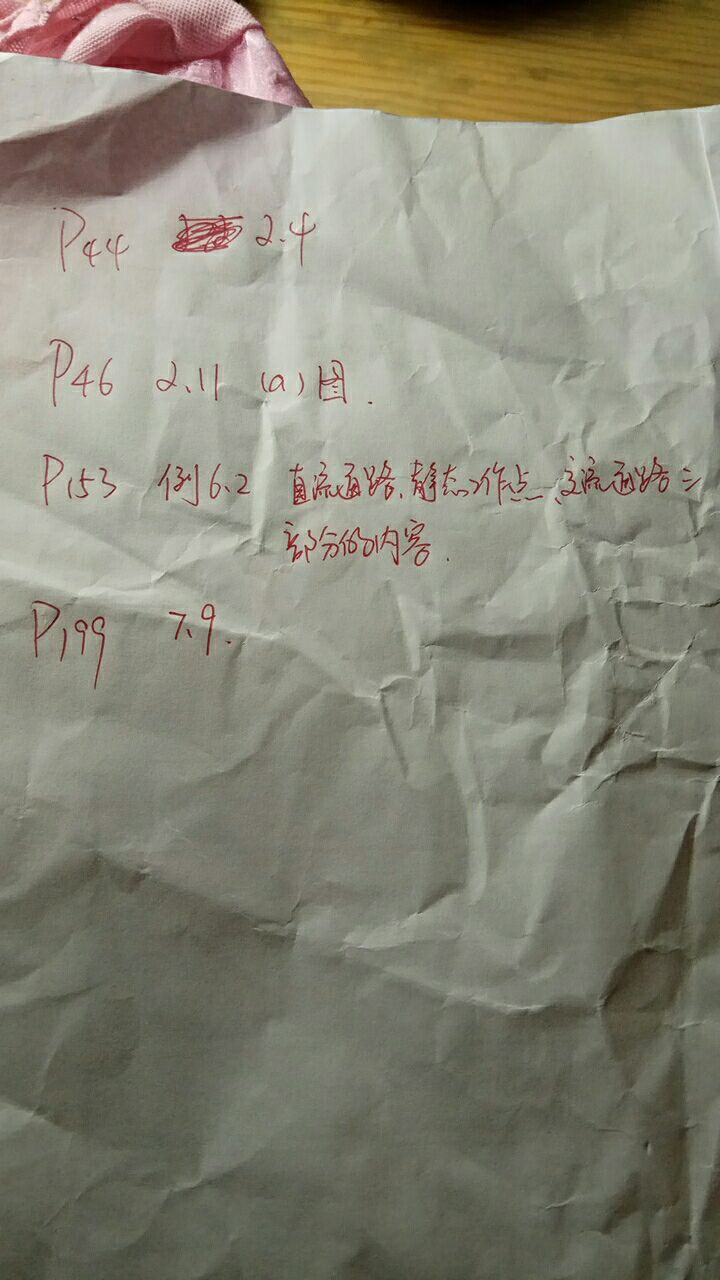 P44 2.4
P46 2.11 (a)图.
P153 例6.2 直流通路、静态工作点、交流通路三
部分的内容.
P199 7.9.